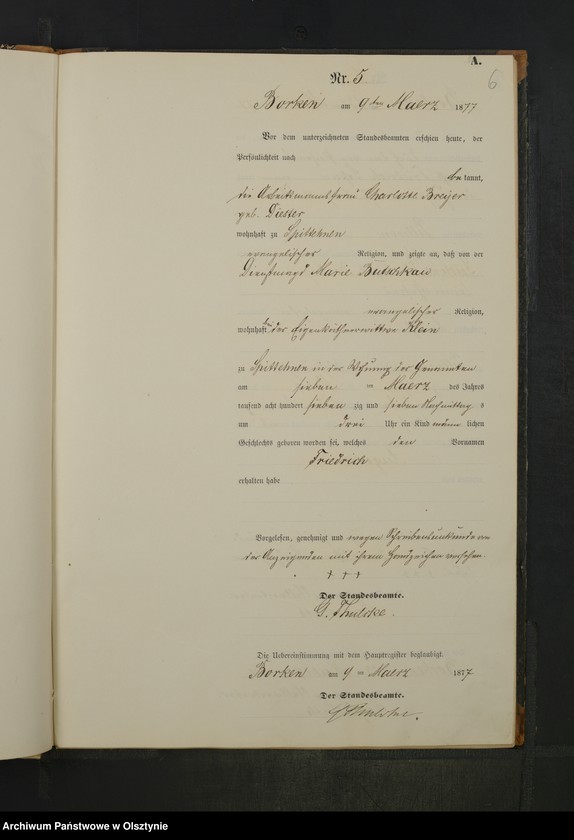 A.
6
Nr. 5
Borken am 9ten Maerz 1877
Vor dem unterzeichneten Standesbeamten erschien heute, der
Persönlichkeit nach
bekannt,
die Arbeitmannsfrau Charlotte Breyer
geb. Diester
wohnhaft zu Spittehnen
evangelischer Religion, und zeigte an, daß von der
Dienstmagd Marie Butschkau
evangelischer Religion,
wohnhaft bei der Eigenkäthnerwittwe Klein
zu Spittehnen in der Wohnung der Genannten
am sieben ten Maerz des Jahres
tausend acht hundert sieben zig und sieben Nachmittag s
um drei Uhr ein Kind männ lichen
Geschlechts geboren worden sei, welches den Vornamen
Friedrich
erhalten habe
Vorgelesen, genehmigt und wegen Schreibensunkunde von
der Anzeigenden mit ihrem Handzeichen versehen.
† † †
Der Standesbeamte.
Die Uebereinstimmung mit dem Hauptregister beglaubigt.
Borken am 9 ten Maerz 1877
Der Standesbeamte.
Archiwum Państwowe w Olsztynie